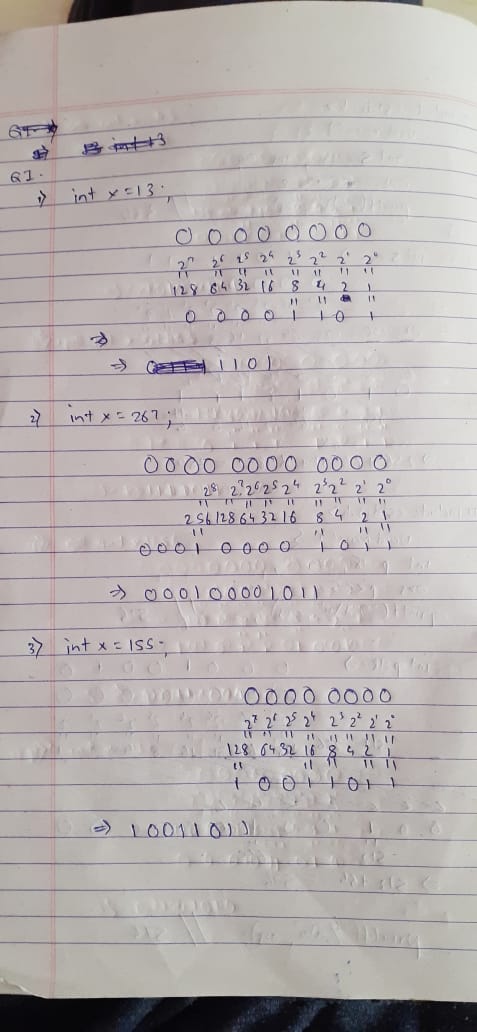 Q1.
1) int x = 13;
0 0 0 0 0 0 0 0
2⁷ 2⁶ 2⁵ 2⁴ 2³ 2² 2¹ 2⁰
128 64 32 16 8 4 2 1
0 0 0 0 1 1 0 1
⇒ 1101
2) int x = 267;
0000 0000 0000
2⁸ 2⁷ 2⁶ 2⁵ 2⁴ 2³ 2² 2¹ 2⁰
256 128 64 32 16 8 4 2 1
0001 0000 1011
⇒ 000100001011
3) int x = 155;
0000 0000
2⁷ 2⁶ 2⁵ 2⁴ 2³ 2² 2¹ 2⁰
128 64 32 16 8 4 2 1
1 0 0 1 1 0 1 1
⇒ 10011011